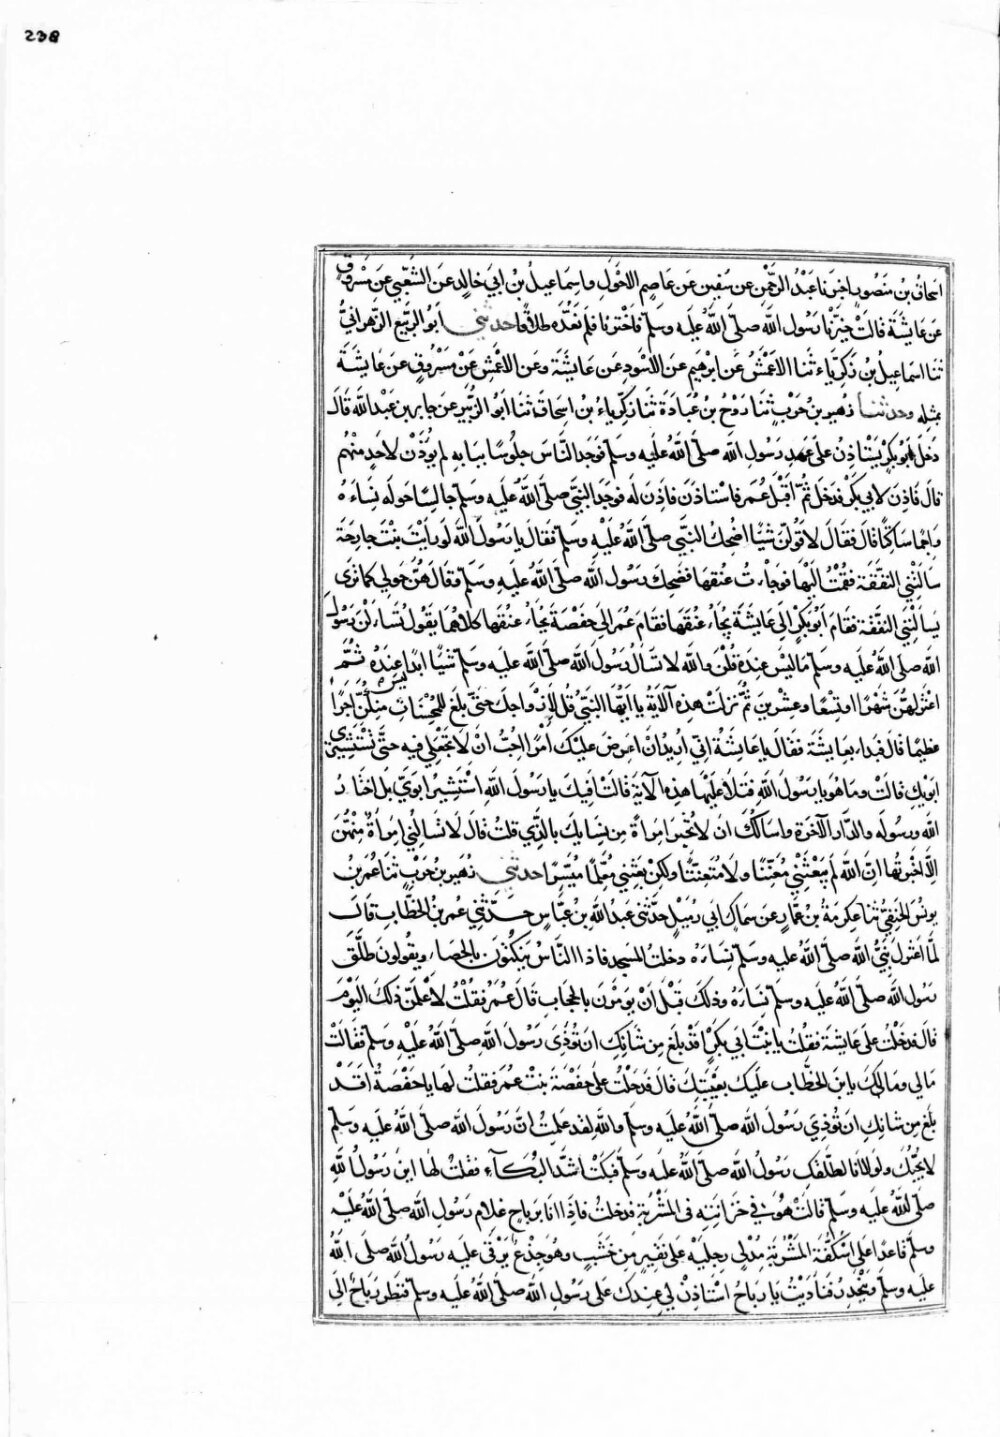 238
اسحاق بن منصور اخبرنا عبد الرحمن عن سفين عن عاصم الاحول واسماعيل بن ابي خالد عن الشعبي عن مسروق
عن عايشة قالت خيرنا رسول الله صلى الله عليه وسلم فاخترناه فلم نعده طلاقا حدثني ابو الربيع الزهراني
ثنا اسماعيل بن زكرياء ثنا الاعمش عن ابرهيم عن الاسود عن عايشة وعن الاعمش عن مسروق عن عايشة
بمثله وحدثنا زهير بن حرب ثنا روح بن عبادة ثنا زكرياء بن اسحاق ثنا ابو الزبير عن جابر بن عبد الله قال
دخل ابو بكر يستاذن على عهد رسول الله صلى الله عليه وسلم فوجد الناس جلوسا ببابه لم يؤذن لاحد منهم
قال فاذن لابي بكر فدخل ثم اقبل عمر فاستاذن فاذن له فوجد النبي صلى الله عليه وسلم جالسا حوله نساءه
واجما ساكتا قال فقال لاقولن شيا اضحك النبي صلى الله عليه وسلم فقال يا رسول الله لو رايت بنت خارجة
سالتني النفقة فقمت اليها فوجاءت عنقها فضحك رسول الله صلى الله عليه وسلم وقال هن حولي كما ترى
يسالنني النفقة فقام ابو بكر الى عايشة يجاء عنقها فقام عمر الى حفصة يجاء عنقها كلاهما يقول تسالن رسول
الله صلى الله عليه وسلم ما ليس عنده قلن والله لا نسال رسول الله صلى الله عليه وسلم شيئا ابدا ليس عنده ثم
اعتزلهن شهرا او تسعا وعشرين ثم نزلت هذه الاية يا ايها النبي قل لازواجك حتى بلغ للمحسنات منكن اجرا
عظيما قال فبدا بعايشة فقال يا عايشة اني اريد ان اعرض عليك امرا احب ان لا تعجلي فيه حتى تستشيري
ابويك قالت وما هو يا رسول الله فتلا عليها هذه الاية قالت افيك يا رسول الله استشير ابوي بل اختار
الله ورسوله والدار الاخرة واسالك ان لا تخبر امراة من نسايك بالذي قلت قال لا تسالني امراة منهن
الا اخبرتها ان الله لم يبعثني معنتا ولا متعنتا ولكن بعثني معلما ميسرا حدثني زهير بن حرب ثنا عمر بن
يونس الحنفي ثنا عكرمة بن عمار عن سماك ابي زميل حدثني عبد الله بن عباس حدثني عمر بن الخطاب قال
لما اعتزل نبي الله صلى الله عليه وسلم نساءه دخلت المسجد فاذا الناس ينكتون بالحصاء ويقولون طلق
رسول الله صلى الله عليه وسلم نساءه وذلك قبل ان يومرن بالحجاب قال عمر فقلت لاعلمن ذلك اليوم
قال فدخلت على عايشة فقلت يا بنت ابي بكر اقد بلغ من شانك ان توذي رسول الله صلى الله عليه وسلم فقالت
مالي ومالك يا ابن الخطاب عليك بعيبتك قال فدخلت على حفصة بنت عمر فقلت لها يا حفصة اقد
بلغ من شانك ان توذي رسول الله صلى الله عليه وسلم والله لقد علمت ان رسول الله صلى الله عليه وسلم
لا يحبك ولولا انا لطلقك رسول الله صلى الله عليه وسلم فبكت اشد البكاء فقلت لها اين رسول الله
صلى الله عليه وسلم قالت هو في خزانته في المشربة فدخلت فاذا انا برباح غلام رسول الله صلى الله عليه
وسلم قاعدا على اسكفة المشربة مدلي رجليه على نقير من خشب وهو جذع يرقى عليه رسول الله صلى الله
عليه وسلم وينحدر فناديت يا رباح استاذن لي عندك على رسول الله صلى الله عليه وسلم فنظر رباح الى